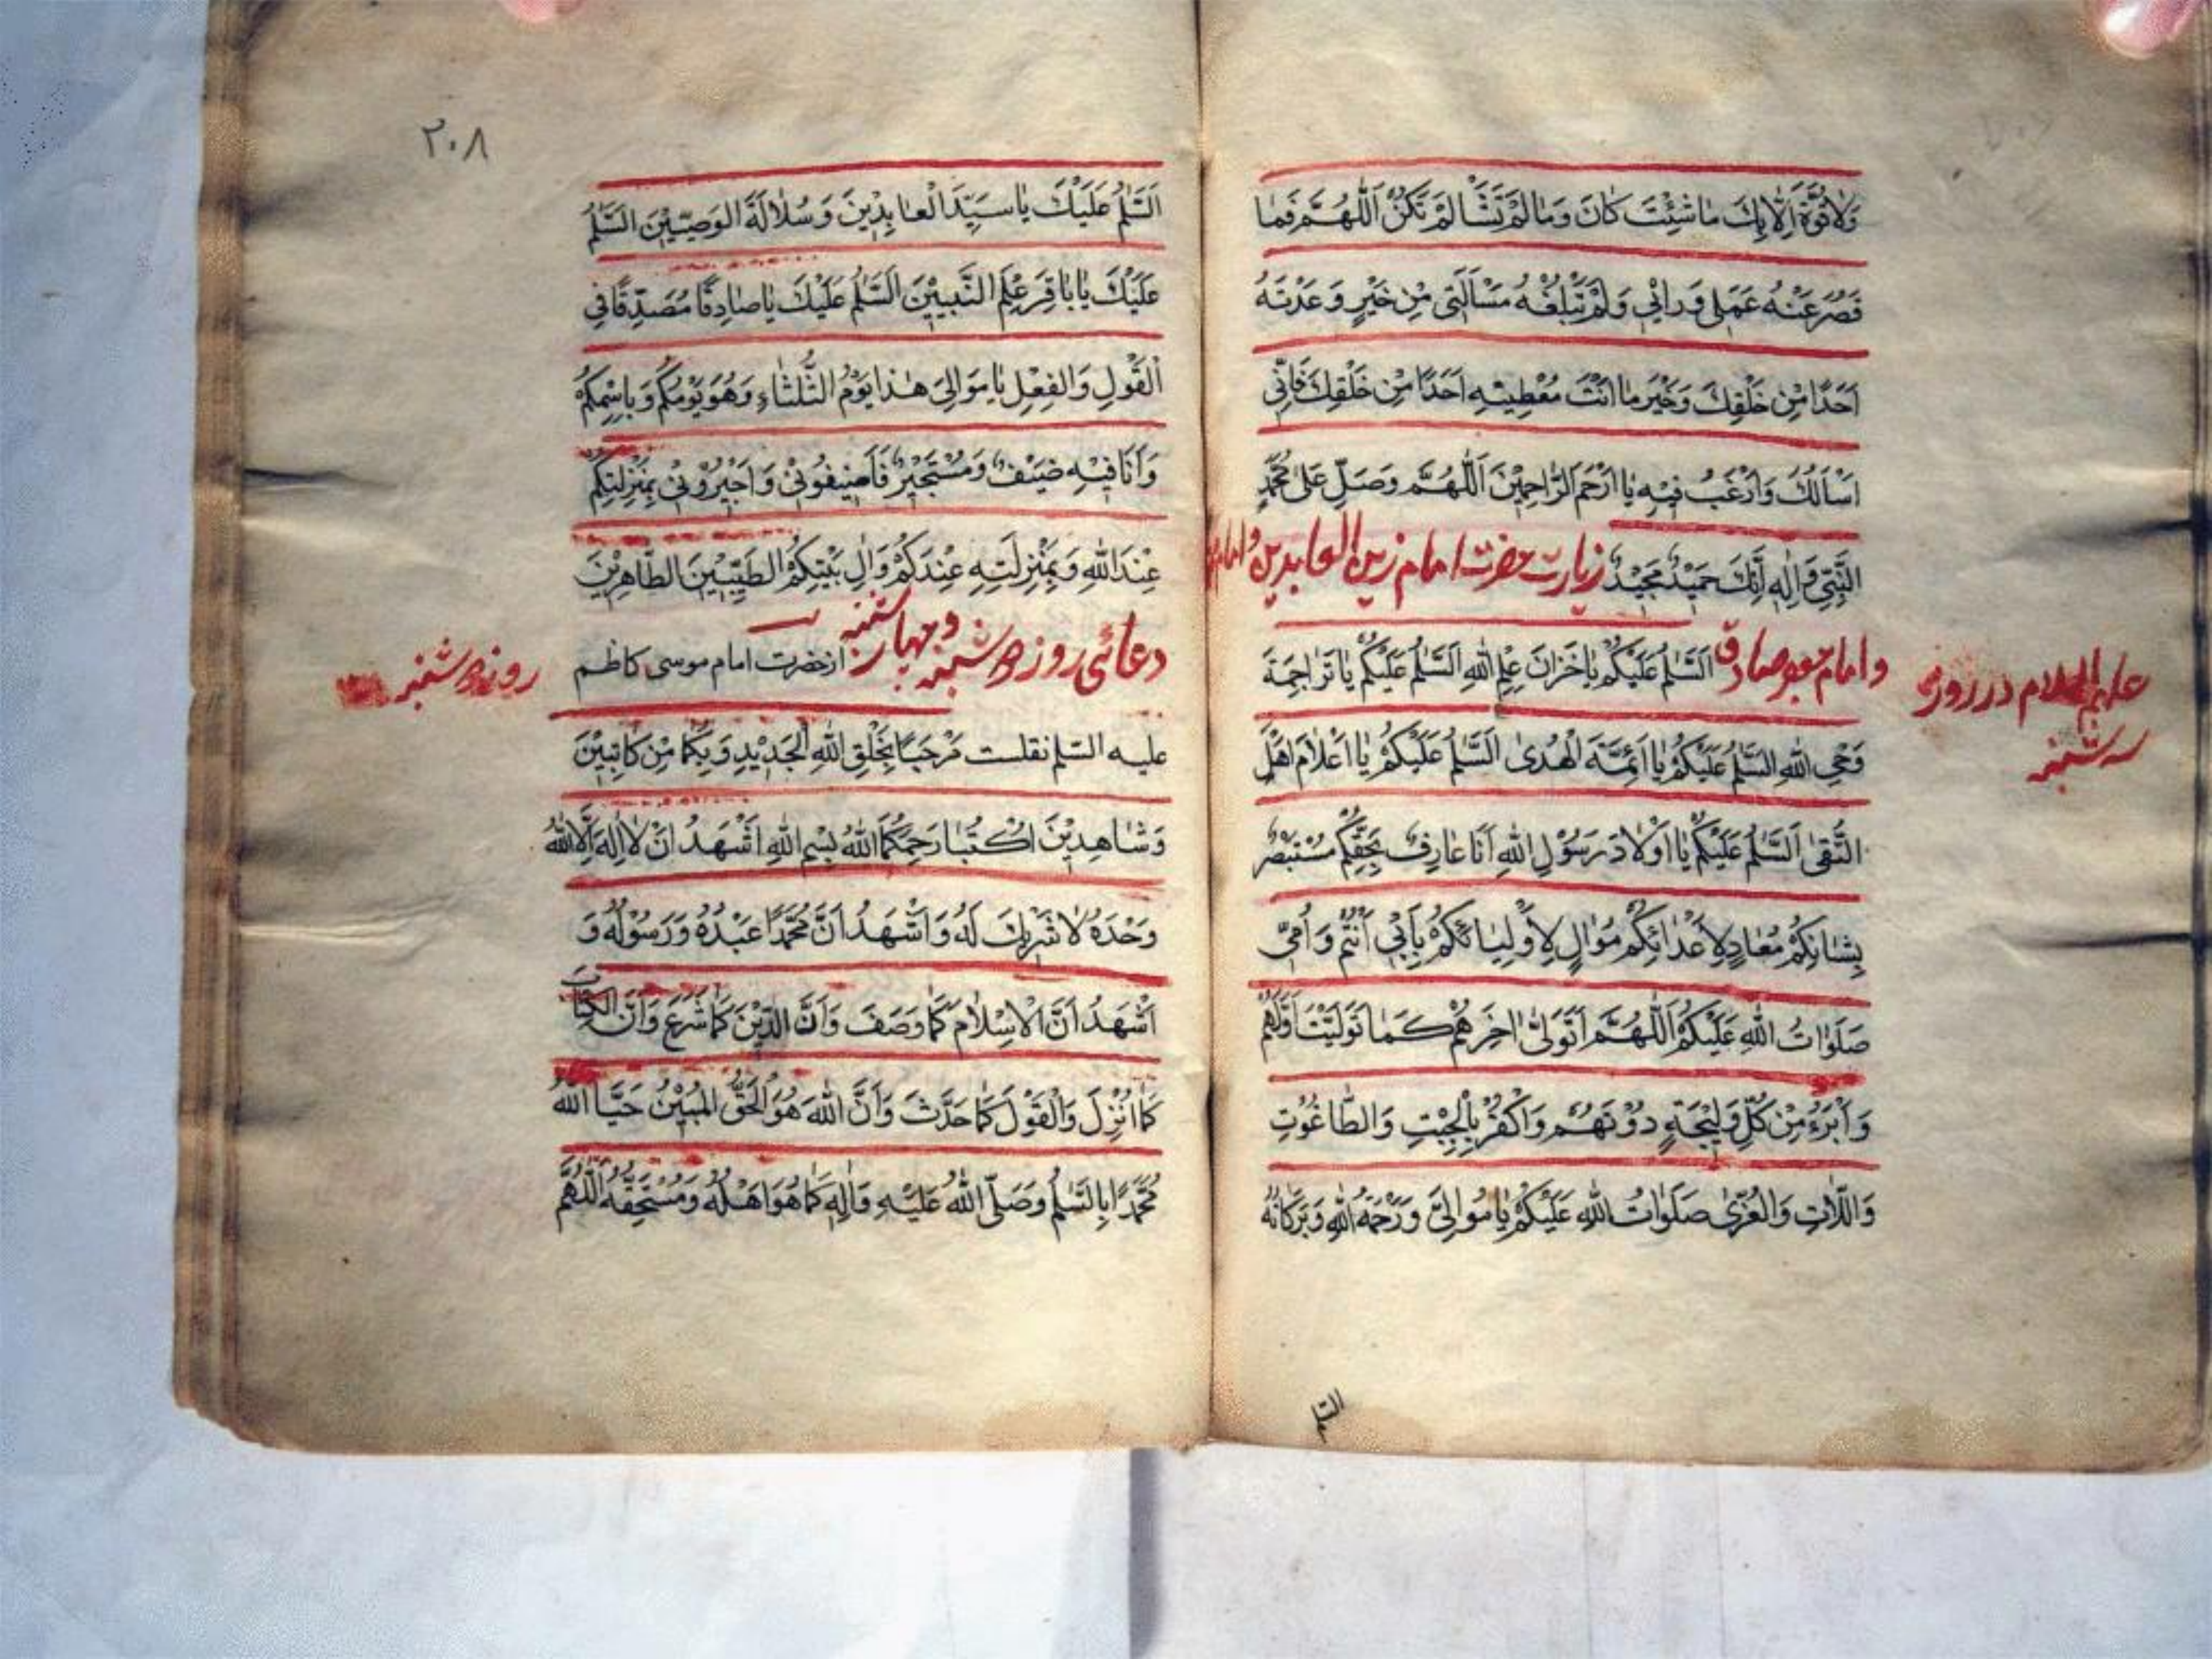 وَلَا قُوَّةَ اِلَّا بِكَ مَا شِئْتَ كَانَ وَمَا لَمْ تَشَأْ لَمْ تَكُنْ اَللّٰهُمَّ فَمَا
قَصُرَ عَنْهُ عَمَلِي وَرَائِي وَلَمْ تَبْلُغْهُ مَسْاَلَتِي مِنْ خَيْرٍ وَعَدْتَهُ
اَحَدًا مِنْ خَلْقِكَ وَخَيْرَ مَا اَنْتَ مُعْطِيْهِ اَحَدًا مِنْ خَلْقِكَ فَاِنِّي
اَسْاَلُكَ وَاَرْغَبُ فِيْهِ يَا اَرْحَمَ الرَّاحِمِيْنَ اَللّٰهُمَّ وَصَلِّ عَلٰى مُحَمَّدٍ
النَّبِيِّ وَاٰلِهٖ اِنَّكَ حَمِيْدٌ مَجِيْدٌ زيارت حضرت امام زين العابدين و امام
و امام جعفر صادق اَلسَّلٰمُ عَلَيْكُمْ يَا خُزَّانَ عِلْمِ اللهِ اَلسَّلٰمُ عَلَيْكُمْ يَا تَرَاجِمَةَ
عليهم السلام در روز
سه شنبه
وَحْيِ اللهِ السَّلٰمُ عَلَيْكُمْ يَا اَئِمَّةَ الْهُدٰى اَلسَّلٰمُ عَلَيْكُمْ يَا اَعْلَامَ اَهْلِ
التُّقٰى اَلسَّلٰمُ عَلَيْكُمْ يَا اَوْلَادَ رَسُوْلِ اللهِ اَنَا عَارِفٌ بِحَقِّكُمْ مُسْتَبْصِرٌ
بِشَانِكُمْ مُعَادٍ لِاَعْدَائِكُمْ مُوَالٍ لِاَوْلِيَائِكُمْ بِاَبِي اَنْتُمْ وَاُمِّي
صَلَوٰاتُ اللهِ عَلَيْكُمْ اَللّٰهُمَّ اَتَوَلّٰى اٰخِرَهُمْ كَمَا تَوَلَّيْتُ اَوَّلَهُمْ
وَاَبْرَءُ مِنْ كُلِّ وَلِيْجَةٍ دُوْنَهُمْ وَاَكْفُرُ بِالْجِبْتِ وَالطَّاغُوْتِ
وَاللَّاتِ وَالْعُزّٰى صَلَوٰاتُ اللهِ عَلَيْكُمْ يَا مَوَالِيَّ وَرَحْمَةُ اللهِ وَبَرَكَاتُهُ
٢٠٨
اَلسَّلٰمُ عَلَيْكَ يَا سَيِّدَ الْعَابِدِيْنَ وَسُلَالَةَ الوَصِيِّيْنَ السَّلٰمُ
عَلَيْكَ يَا بَاقِرَ عِلْمِ النَّبِيِّيْنَ اَلسَّلٰمُ عَلَيْكَ يَا صَادِقًا مُصَدِّقًا فِي
الْقَوْلِ وَالْفِعْلِ يَا مَوَالِيَ هٰذَا يَوْمُ الثُّلَثَاءِ وَهُوَ يَوْمُكُمْ وَبِاسْمِكُمْ
وَاَنَا فِيْهِ ضَيْفٌ وَمُسْتَجِيْرٌ فَاَضِيْفُوْنِي وَاَجِيْرُوْنِي بِمَنْزِلَتِكُمْ
عِنْدَ اللهِ وَبِمَنْزِلَتِهِ عِنْدَكُمْ وَاٰلِ بَيْتِكُمُ الطَّيِّبِيْنَ الطَّاهِرِيْنَ
دعائى روز سه شنبه و چهار شنبه از حضرت امام موسى كاظم
روز سه شنبه
عليه السلم نقلست مَرْحَبًا بِخَلْقِ اللهِ الْجَدِيْدِ وَبِكُمَا مِنْ كَاتِبَيْنِ
وَشَاهِدَيْنِ اُكْتُبَا رَحِمَكُمَا اللهُ بِسْمِ اللهِ اَشْهَدُ اَنْ لَا اِلٰهَ اِلَّا اللهُ
وَحْدَهُ لَا شَرِيْكَ لَهُ وَاَشْهَدُ اَنَّ مُحَمَّدًا عَبْدُهُ وَرَسُوْلُهُ وَ
اَشْهَدُ اَنَّ الْاِسْلَامَ كَمَا وَصَفَ وَاَنَّ الدِّيْنَ كَمَا شَرَعَ وَاَنَّ الْكِتَابَ
كَمَا اَنْزَلَ وَالْقَوْلَ كَمَا حَدَّثَ وَاَنَّ اللهَ هُوَ الْحَقُّ الْمُبِيْنُ حَيَّا اللهُ
مُحَمَّدًا بِالسَّلٰمِ وَصَلَّى اللهُ عَلَيْهِ وَاٰلِهٖ كَمَا هُوَ اَهْلُهُ وَمُسْتَحِقُّهُ اَللّٰهُمَّ